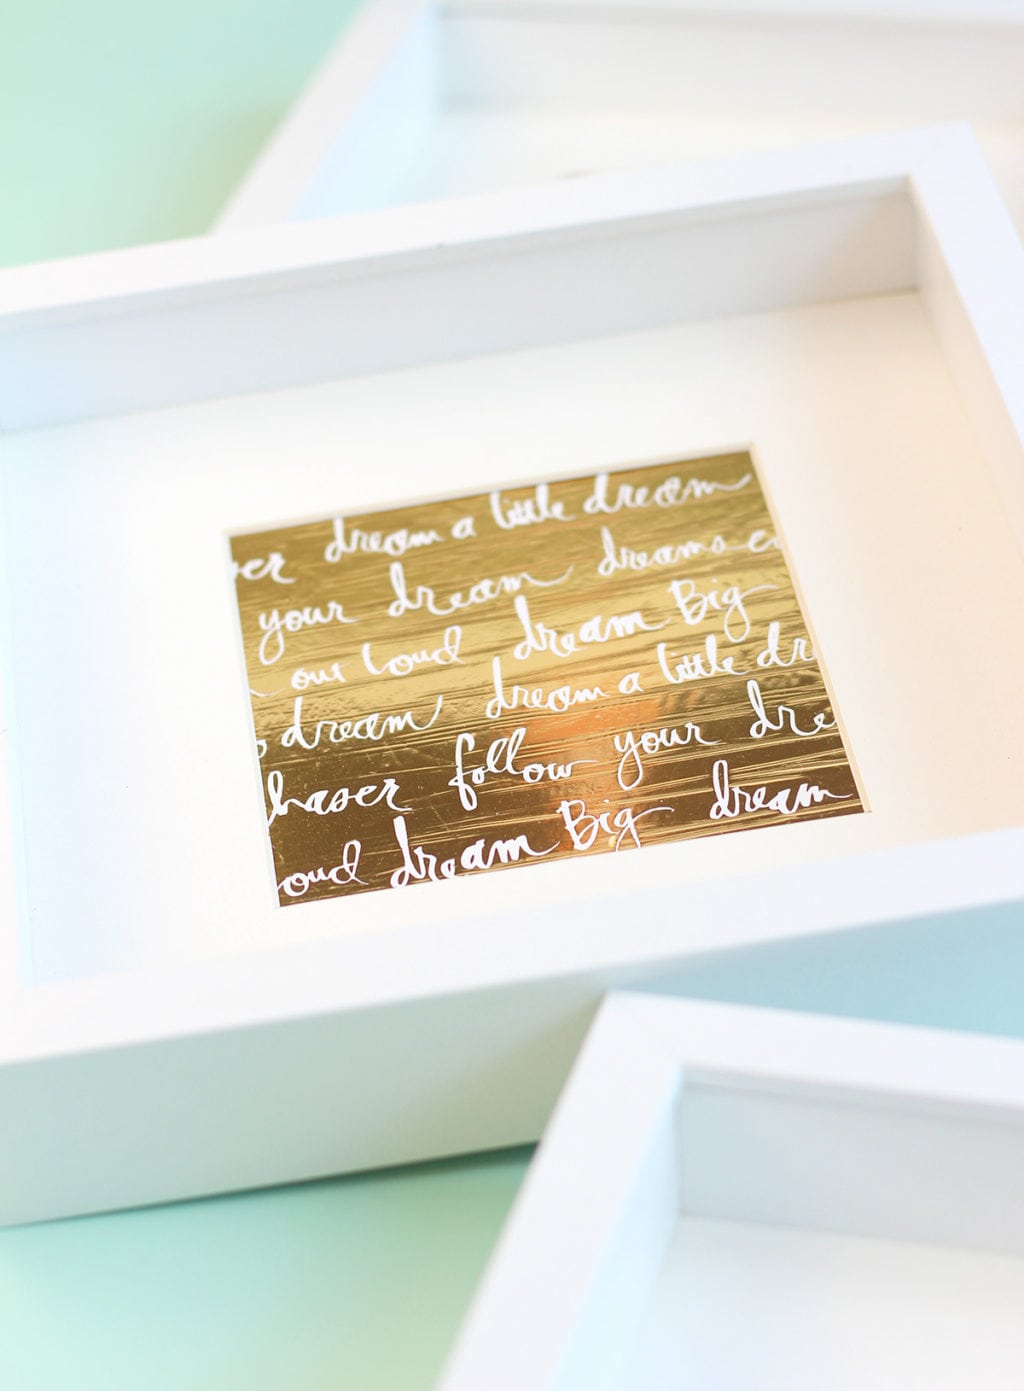 er dream a little dream
your dream dreams co
out loud dream Big
s dream dream a little dr
haser follow your dre
oud dream Big dream